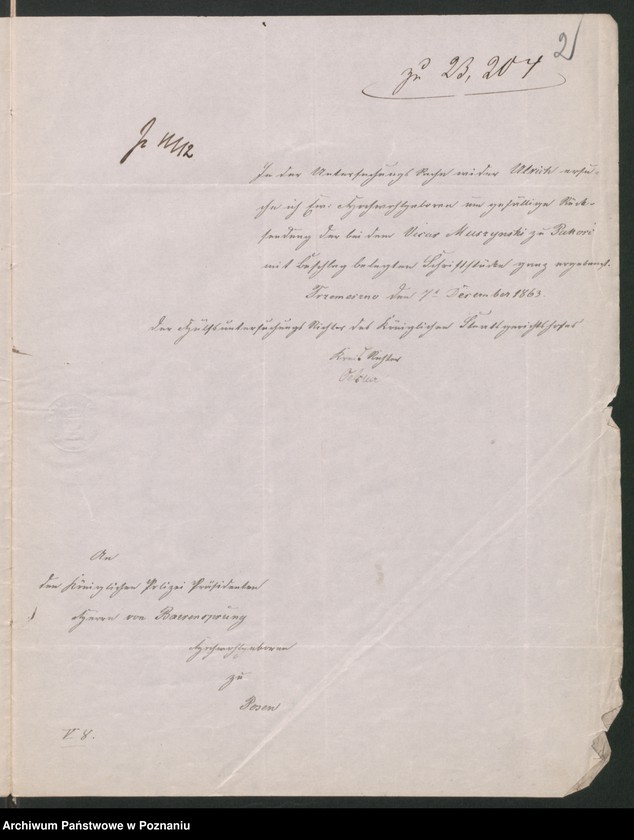 2
zu 23,204
In der Untersuchungs Sache wider Ulrich ersu-
che ich Eur. Hochwohlgeboren um gefällige Rück-
sendung der bei dem Vicar Muszynski zu
mit Beschlag belegten Schriftstücke ganz ergebenst.
Trzemeszno den 7t December 1863
Der Hülfsuntersuchungs Richter des Königlichen Staatsgerichtshofes
Kreis Richter
An
den Königlichen Polizei Präsidenten
Herrn von Baerensprung
Hochwohlgeboren
zu
Posen
V 8.
Archiwum Państwowe w Poznaniu